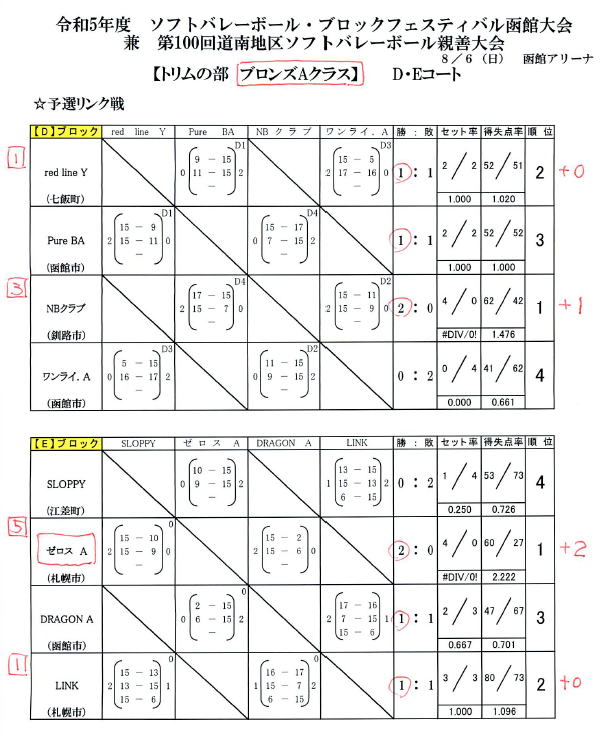 令和5年度 ソフトバレーボール・ブロックフェスティバル函館大会
兼 第100回道南地区ソフトバレーボール親善大会
8/6(日) 函館アリーナ
【トリムの部 ブロンズAクラス】 D・Eコート
☆予選リンク戦
【D】ブロック red line Y Pure BA NBクラブ ワンライ.A 勝:敗 セット率 得失点率 順位
1 red line Y (七飯町) D1 0 9 - 15 11 - 15 - 2 D3 2 15 - 5 17 - 16 - 0 1:1 2/2 1.000 52/51 1.020 2 +0
Pure BA (函館市) D1 2 15 - 9 15 - 11 - 0 D4 0 15 - 17 7 - 15 - 2 1:1 2/2 1.000 52/52 1.000 3
3 NBクラブ (釧路市) D4 2 17 - 15 15 - 7 - 0 D2 2 15 - 11 15 - 9 - 0 2:0 4/0 #DIV/0! 62/42 1.476 1 +1
ワンライ.A (函館市) D3 0 5 - 15 16 - 17 - 2 D2 0 11 - 15 9 - 15 - 2 0:2 0/4 0.000 41/62 0.661 4
【E】ブロック SLOPPY ゼロス A DRAGON A LINK 勝:敗 セット率 得失点率 順位
SLOPPY (江差町) 0 10 - 15 9 - 15 - 2 1 13 - 15 15 - 13 6 - 15 2 0:2 1/4 0.250 53/73 0.726 4
5 ゼロス A (札幌市) 0 2 15 - 10 15 - 9 - 0 2 15 - 2 15 - 6 - 0 2:0 4/0 #DIV/0! 60/27 2.222 1 +2
DRAGON A (函館市) 0 0 2 - 15 6 - 15 - 2 2 17 - 16 7 - 15 15 - 6 1 1:1 2/3 0.667 47/67 0.701 3
1 LINK (札幌市) 0 2 15 - 13 13 - 15 15 - 6 1 0 1 16 - 17 15 - 7 6 - 15 2 1:1 3/3 1.000 80/73 1.096 2 +0